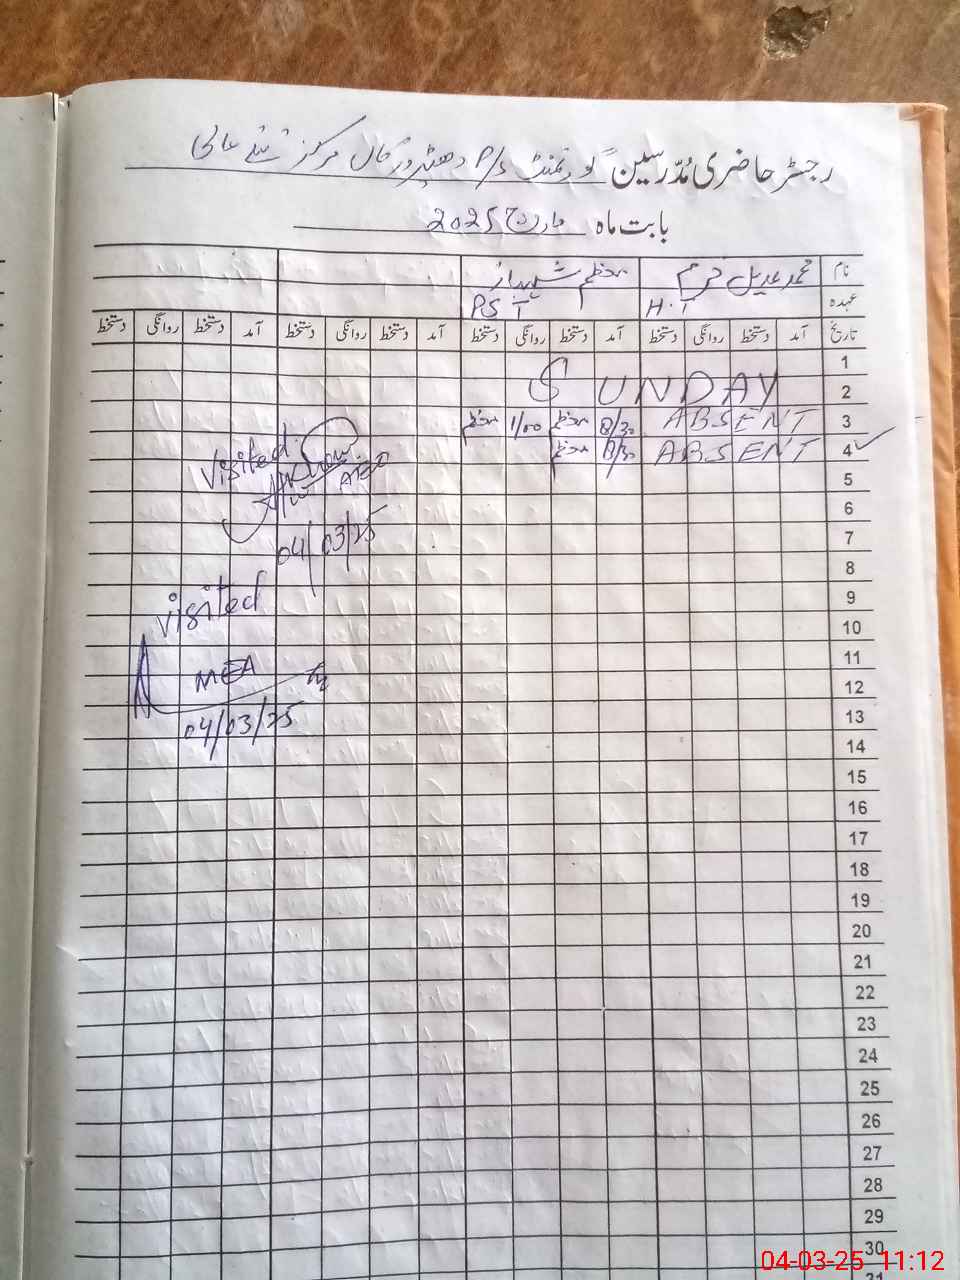 رجسٹر حاضری مُدّرسین گورنمنٹ P/S مرکز
بابت ماہ مارچ 2025
نام محمد عدیل معظم
عہدہ H.T PST
تاریخ آمد دستخط روانگی دستخط آمد دستخط روانگی دستخط آمد دستخط روانگی دستخط آمد دستخط روانگی دستخط
1
2 SUNDAY
3 ABSENT 8/30 معظم 1/00 معظم
4 ABSENT 8/30 معظم
Visited
5
AEO
6
7
04/03/25
8
9
visited
10
11
MEA
12
13
04/03/25
14
15
16
17
18
19
20
21
22
23
24
25
26
27
28
29
30
04-03-25 11:12